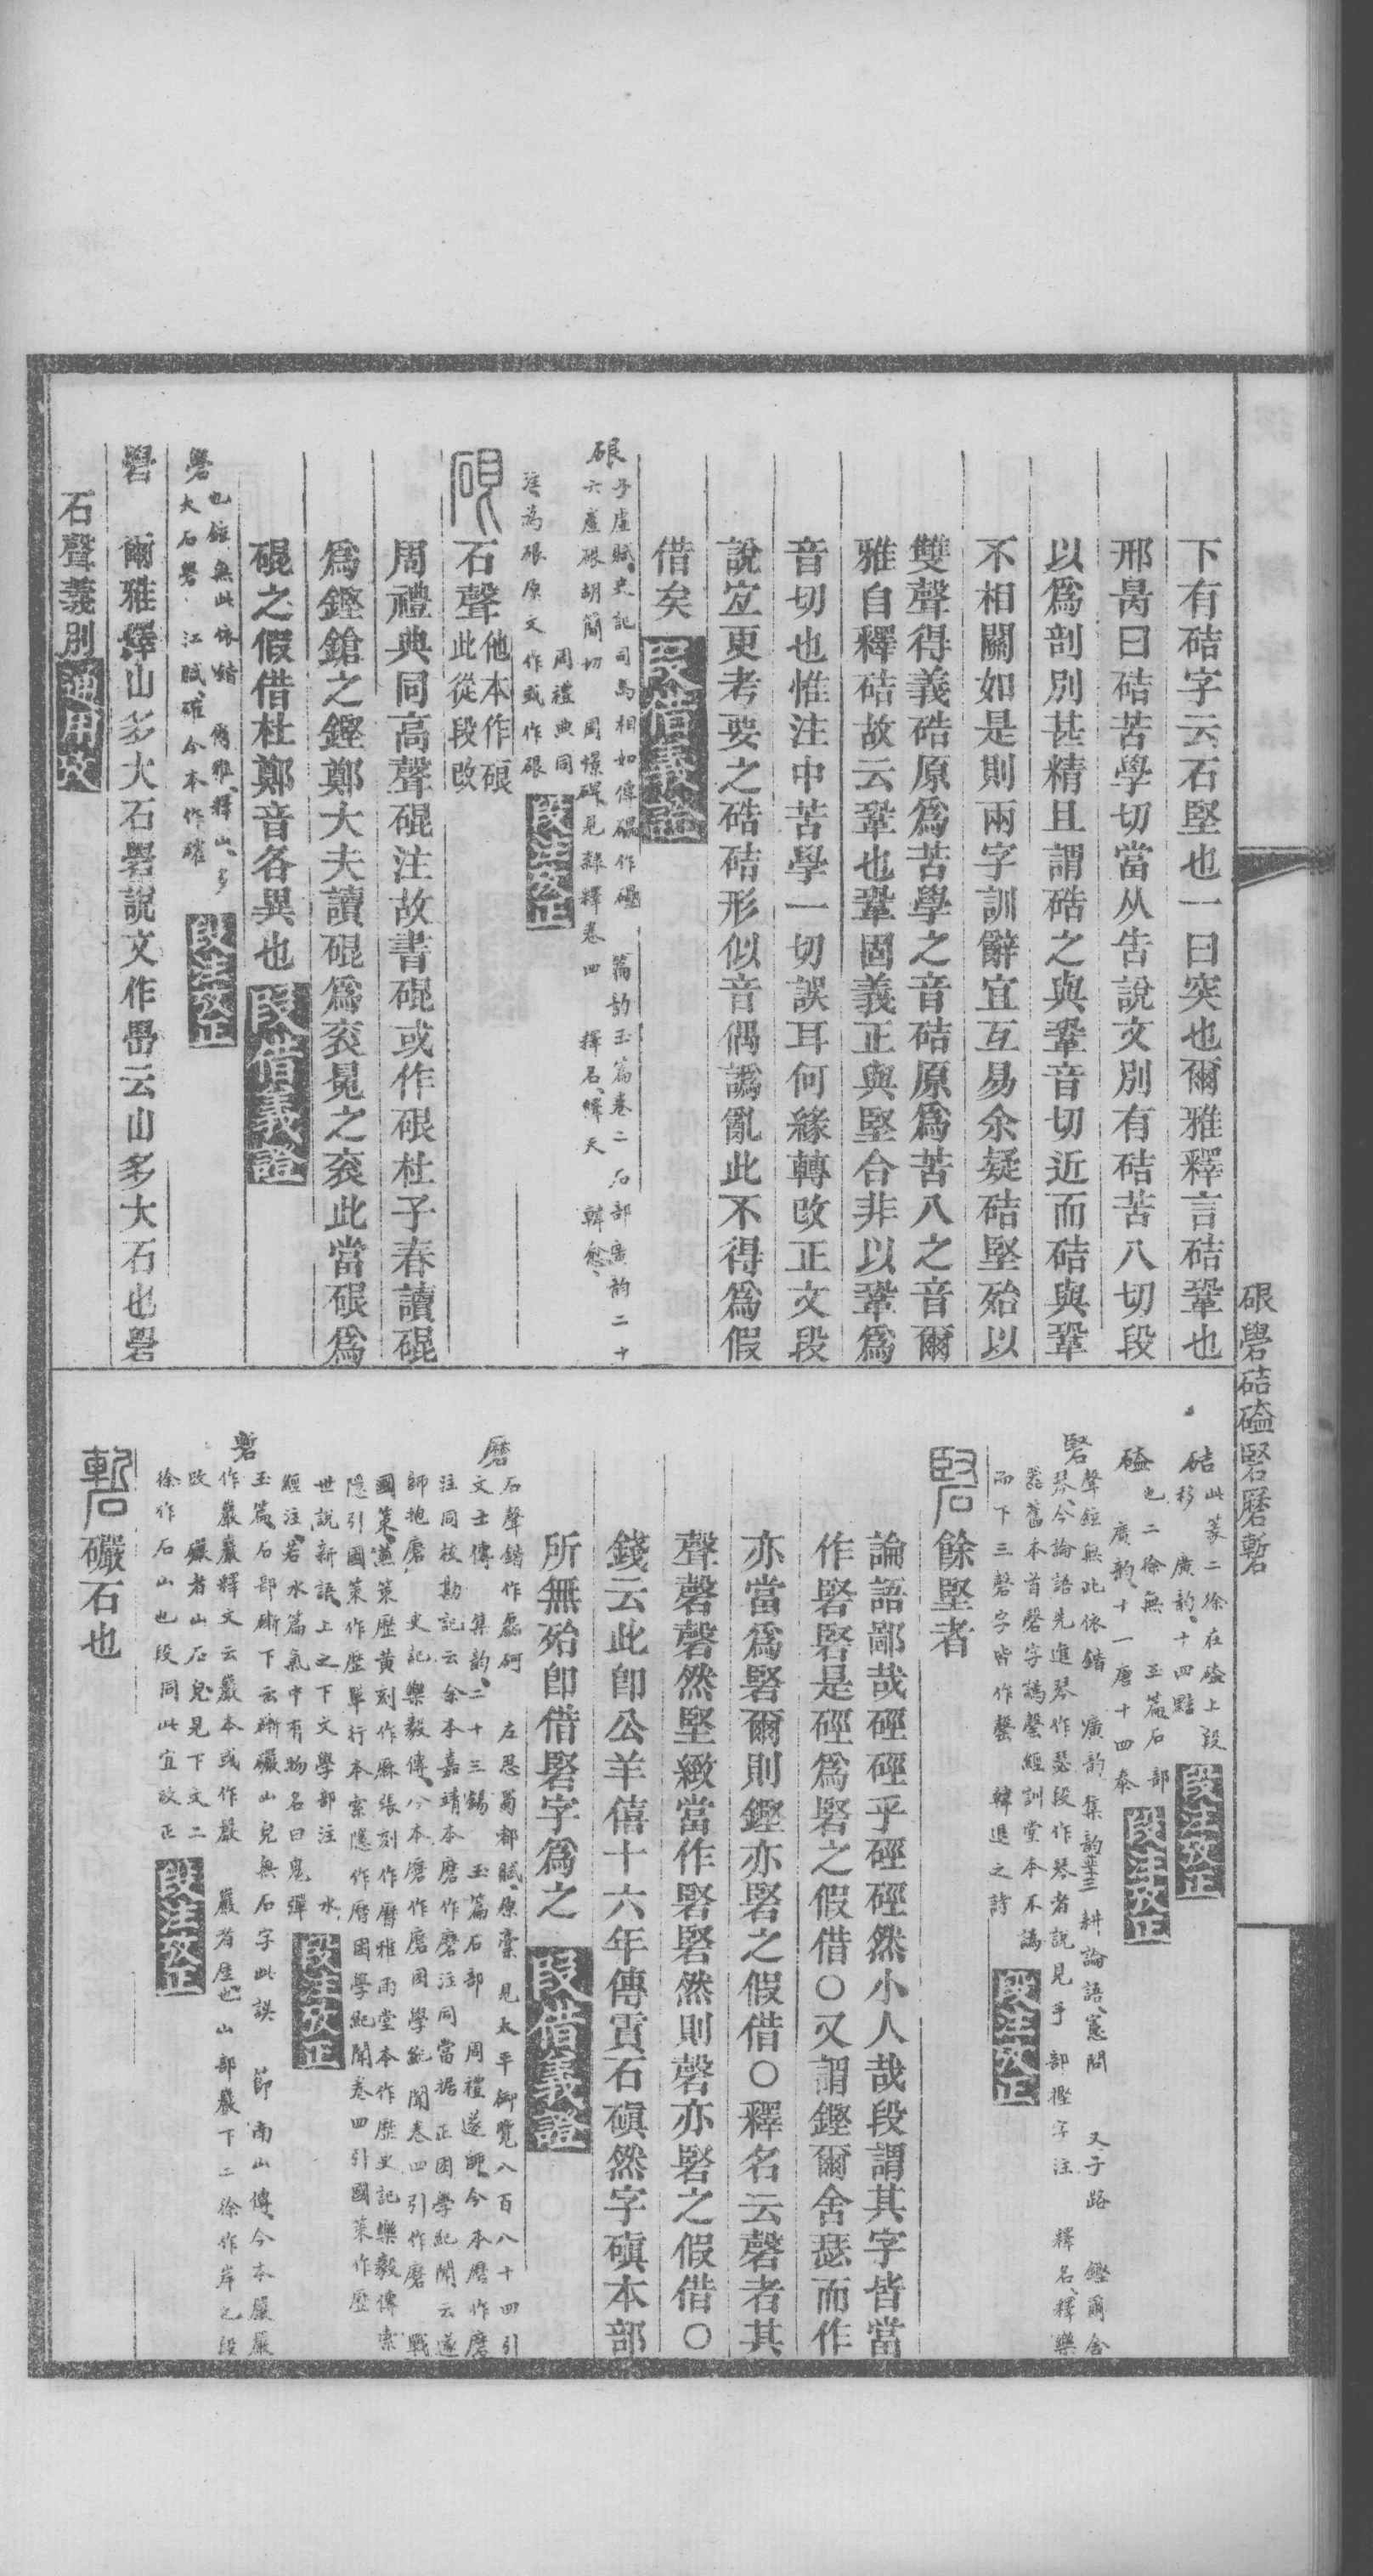 下有硈字云石堅也一曰突也爾雅釋言硈鞏也
邢昺曰硈苦學切當从告說文別有硈苦八切段
以爲剖別甚精且謂硞之與鞏音切近而硈與鞏
不相關如是則兩字訓辭宜互易余疑硈堅殆以
雙聲得義硞原爲苦學之音硈原爲苦八之音爾
雅自釋硈故云鞏也鞏固義正與堅合非以鞏爲
音切也惟注中苦學一切誤耳何緣轉改正文段
說宐更考要之硞硈形似音偶譌亂此不得爲假
借矣 段借義證
硍 子虛賦史記司馬相如傳硍作磥 篇韵玉篇卷二石部廣韵二十
六產硍胡簡切 周憬碑見隸釋卷四 釋名釋天 韓愈
周禮典同
注爲硍原文作或作硍 段注攷正
硍 石聲 他本作硍此從段改
周禮典同高聲硍注故書硍或作硍杜子春讀硍
爲鏗鎗之鏗鄭大夫讀硍爲衮冕之衮此當硍爲
硍之假借杜鄭音各異也 段借義證
礐 也鉉無此依鍇 爾雅釋山多
大石礐 江賦礭今本作礭 段注攷正
礐 爾雅釋山多大石礐說文作嶨云山多大石也礐
石聲義別 通用攷
硍礐硈磕硻磿𥔲
硈 此篆二徐在磕上段
移 廣韵十四黠 段注攷正
磕 也二徐無 玉篇石部
廣韵十一唐十四泰 段注攷正
硻 聲鉉無此依鍇 廣韵集韵十三耕論語憲問 又子路 鏗爾舍
琴今論語先進琴作瑟段作琴者說見手部摼字注 釋名釋樂
器舊本首磬字譌罄經訓堂本不譌
而下三磬字皆作罄 韓退之詩 段注攷正
硻 餘堅者
論語鄙哉硜硜乎硜硜然小人哉段謂其字皆當
作硻硻是硜爲硻之假借○又謂鏗爾舍瑟而作
亦當爲硻爾則鏗亦硻之假借○釋名云磬者其
聲磬磬然堅緻當作硻硻然則磬亦硻之假借○
錢云此卽公羊僖十六年傳霣石磌然字磌本部
所無殆卽借硻字爲之 段借義證
磿 石聲鍇作磊砢 左思蜀都賦原槀見太平御覽八百八十四引
文士傳 集韵二十三錫 玉篇石部 周禮遂師今本磨作磨
注同校勘記云余本嘉靖本磨作磿注同當據正困學紀聞云遂
師抱磿 史記樂毅傳今本磿作磨困學紀聞卷四引作磨 戰
國策燕策歷黃刻作厤張刻作曆雅雨堂本作歷史記樂毅傳索
隱引國策作歷單行本索隱作曆困學紀聞卷四引國策作歷
世說新語上之下文學部注 水
經注若水篇氣中有物名曰鬼彈 段注攷正
𥔲 玉篇石部𥔲下云𥔲礹山皃無石字此誤 節南山傳今本巖巖
作嚴嚴釋文云嚴本或作巖 嚴若厓也山部巖下二徐作岸也段
改 礹者山石皃見下文二
徐作石山也段同此宜改正 段注攷正
𥔲 礹石也